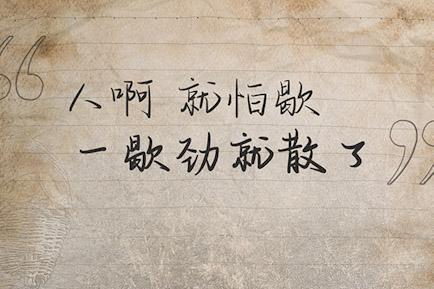 人啊 就怕歇
一歇劲就散了